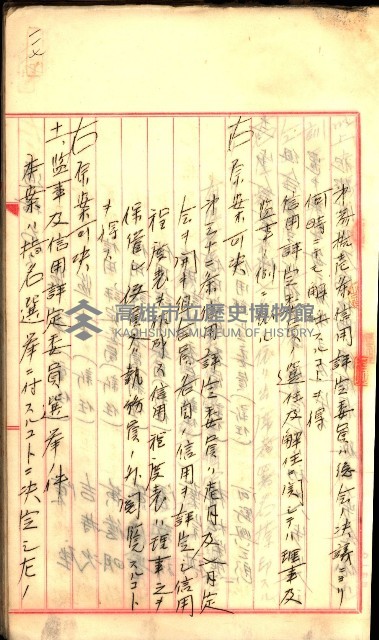 二七
信用評定委員ハ總會ノ決議ニヨリ
何時ニテモ解任スルコトヲ得
信用評定委員ノ選任及解任ニ関シテハ理事及
監事ノ例ニ
右原案可決
第三十二条 信用評定委員ハ 月及 月定
會ヲ開キ組合員各自ノ信用ヲ評定シ信用
程度表ヲ作成ス信用程度表ハ理事之ヲ
保管シ役員及執務員ノ外閲覧スルコト
ヲ得ス
右原案可決
十一、監事及信用評定委員選挙ノ件
本案ハ指名選挙ニ付スルコトニ決定シタリ
高雄市立歷史博物館
KAOHSIUNG MUSEUM OF HISTORY